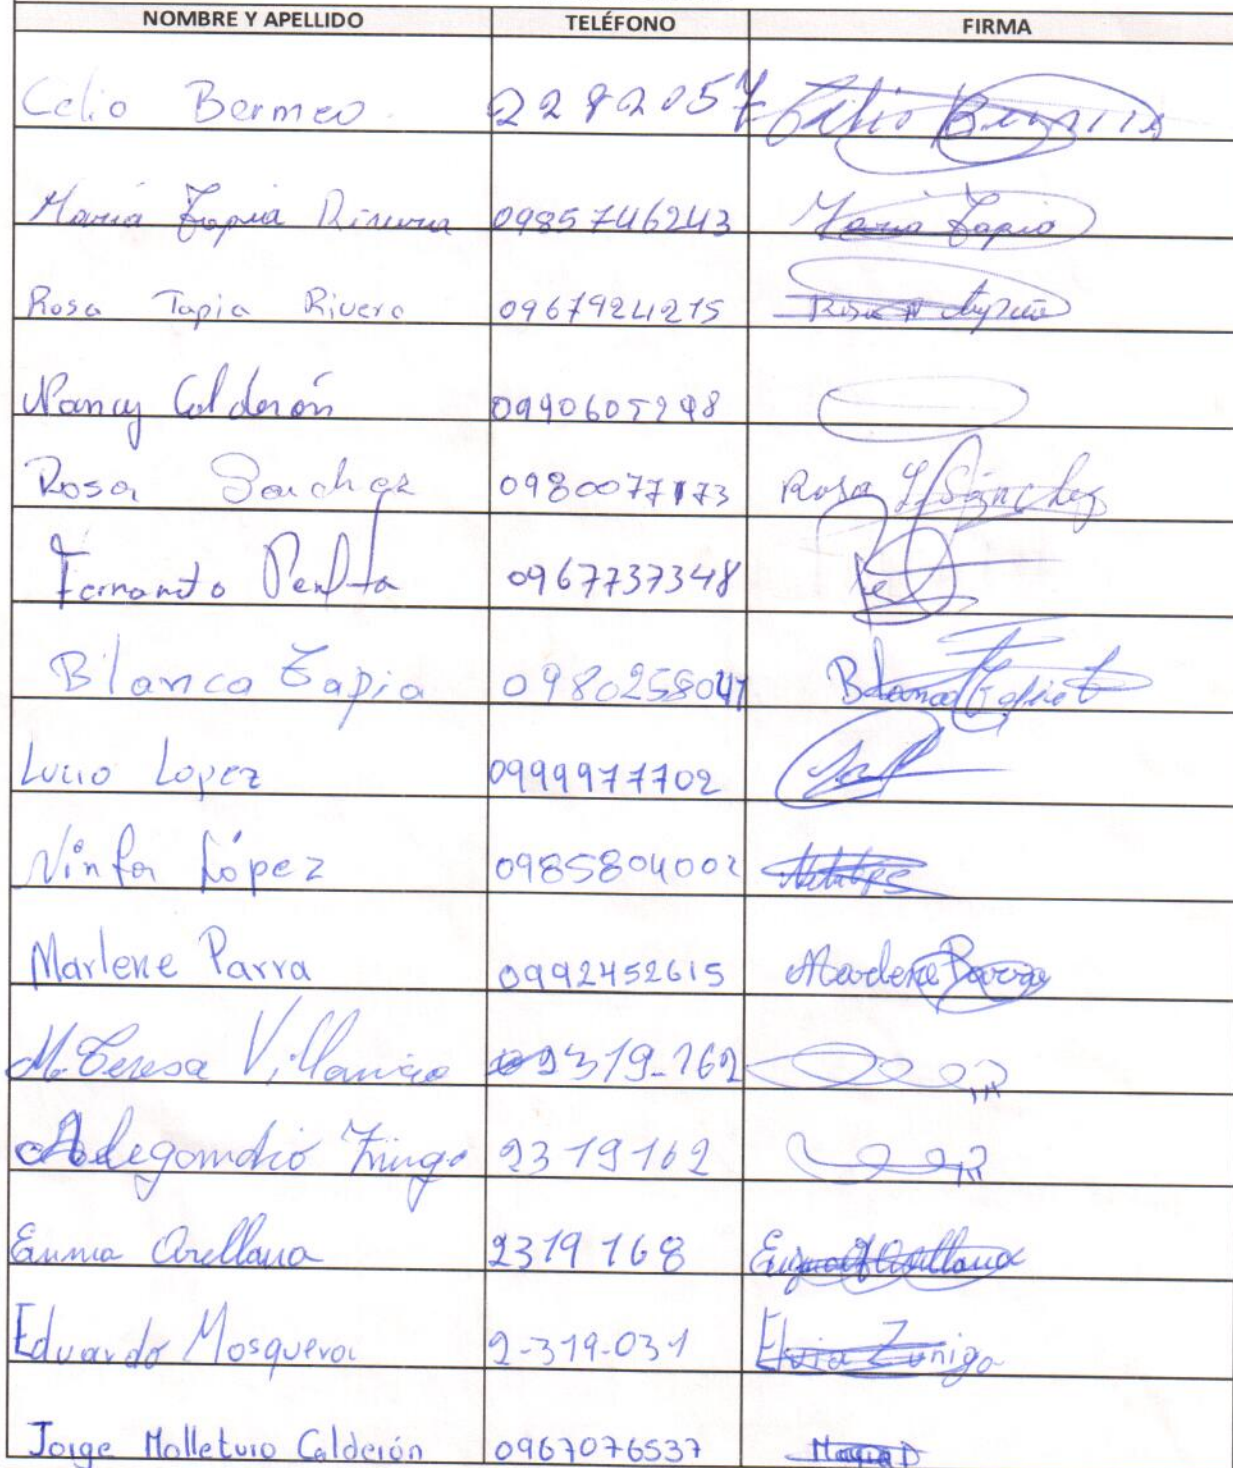 NOMBRE Y APELLIDO TELÉFONO FIRMA
Celio Bermeo 2282057 Celio Bermeo
Maria Tapia Rivera 0985746243 Maria Tapia
Rosa Tapia Rivera 0967924215 Rosa Tapia
Nancy Calderón 0990605298
Rosa Sanchez 0980077173 Rosa Sánchez
Fernando Peralta 0967737348
Blanca Tapia 0980258041 Blanca Tapia
Lucio Lopez 0999977702
Ninfa López 0985804002
Marlene Parra 0992452615 Marlene Parra
M. Teresa Villavicio 2319-162
2319162
Emma Arellana 2319168 Arellana
Eduardo Mosquera 2-319-031 Elvia Zuniga
Jorge Molleturo Calderón 0967076537 Maria D